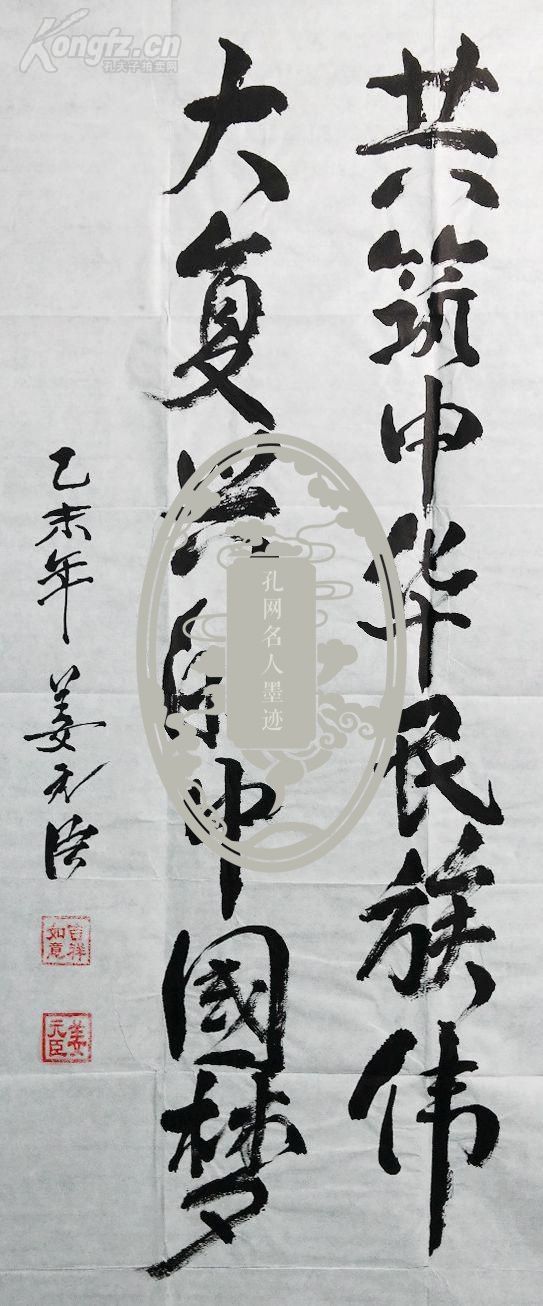 Kongfz.cn
孔夫子拍卖网
共筑中华民族伟
大复兴 中国梦
乙未年 姜元
吉祥如意
姜元臣
孔网名人墨迹